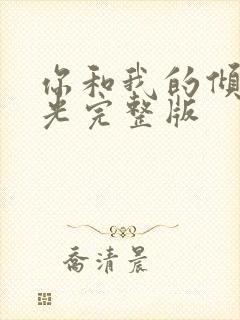 你和我的倾
光完整版
乔清晨